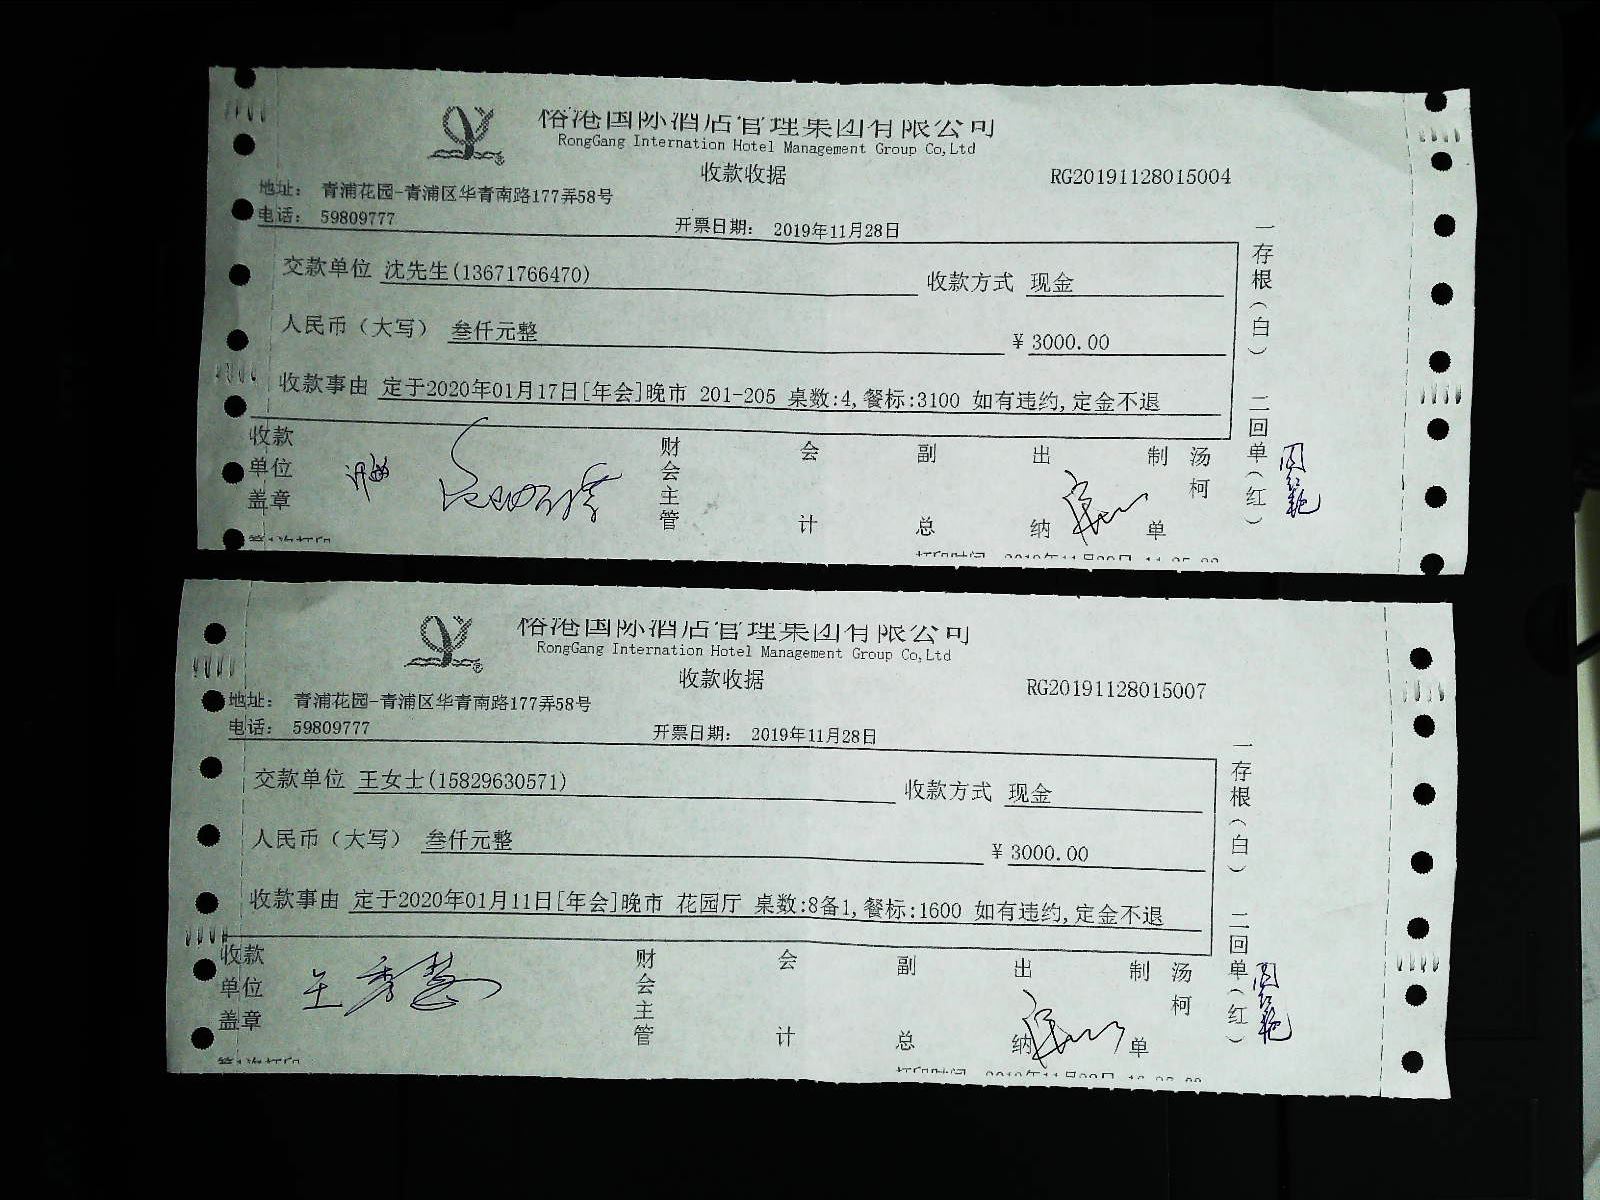 榕港国际酒店管理集团有限公司
RongGang Internation Hotel Management Group Co,Ltd
收款收据
RG20191128015004
地址： 青浦花园-青浦区华青南路177弄58号
电话： 59809777
开票日期： 2019年11月28日
交款单位 沈先生(13671766470) 收款方式 现金
人民币（大写） 叁仟元整 ¥3000.00
收款事由 定于2020年01月17日[年会]晚市 201-205 桌数:4,餐标:3100 如有违约,定金不退
收款单位盖章 财会主管 会计 副总 出纳 制单 汤柯
一存根（白） 二回单（红）
第1次打印
榕港国际酒店管理集团有限公司
RongGang Internation Hotel Management Group Co,Ltd
收款收据
RG20191128015007
地址： 青浦花园-青浦区华青南路177弄58号
电话： 59809777
开票日期： 2019年11月28日
交款单位 王女士(15829630571) 收款方式 现金
人民币（大写） 叁仟元整 ¥3000.00
收款事由 定于2020年01月11日[年会]晚市 花园厅 桌数:8备1,餐标:1600 如有违约,定金不退
收款单位盖章 王秀慧 财会主管 会计 副总 出纳 制单 汤柯
一存根（白） 二回单（红）
第1次打印